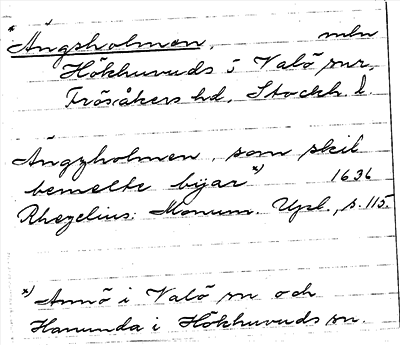 * Ängsholmen, mln
Hökhuvuds o Valö snr,
Frösåkers hd, Stockh. l.
Ängzholmen, som skil
bemelte byar *) 1636
Rhezelius: Monum. Upl., s. 115.
*) Annö i Valö sn och
Hanunda i Hökhuvuds sn.